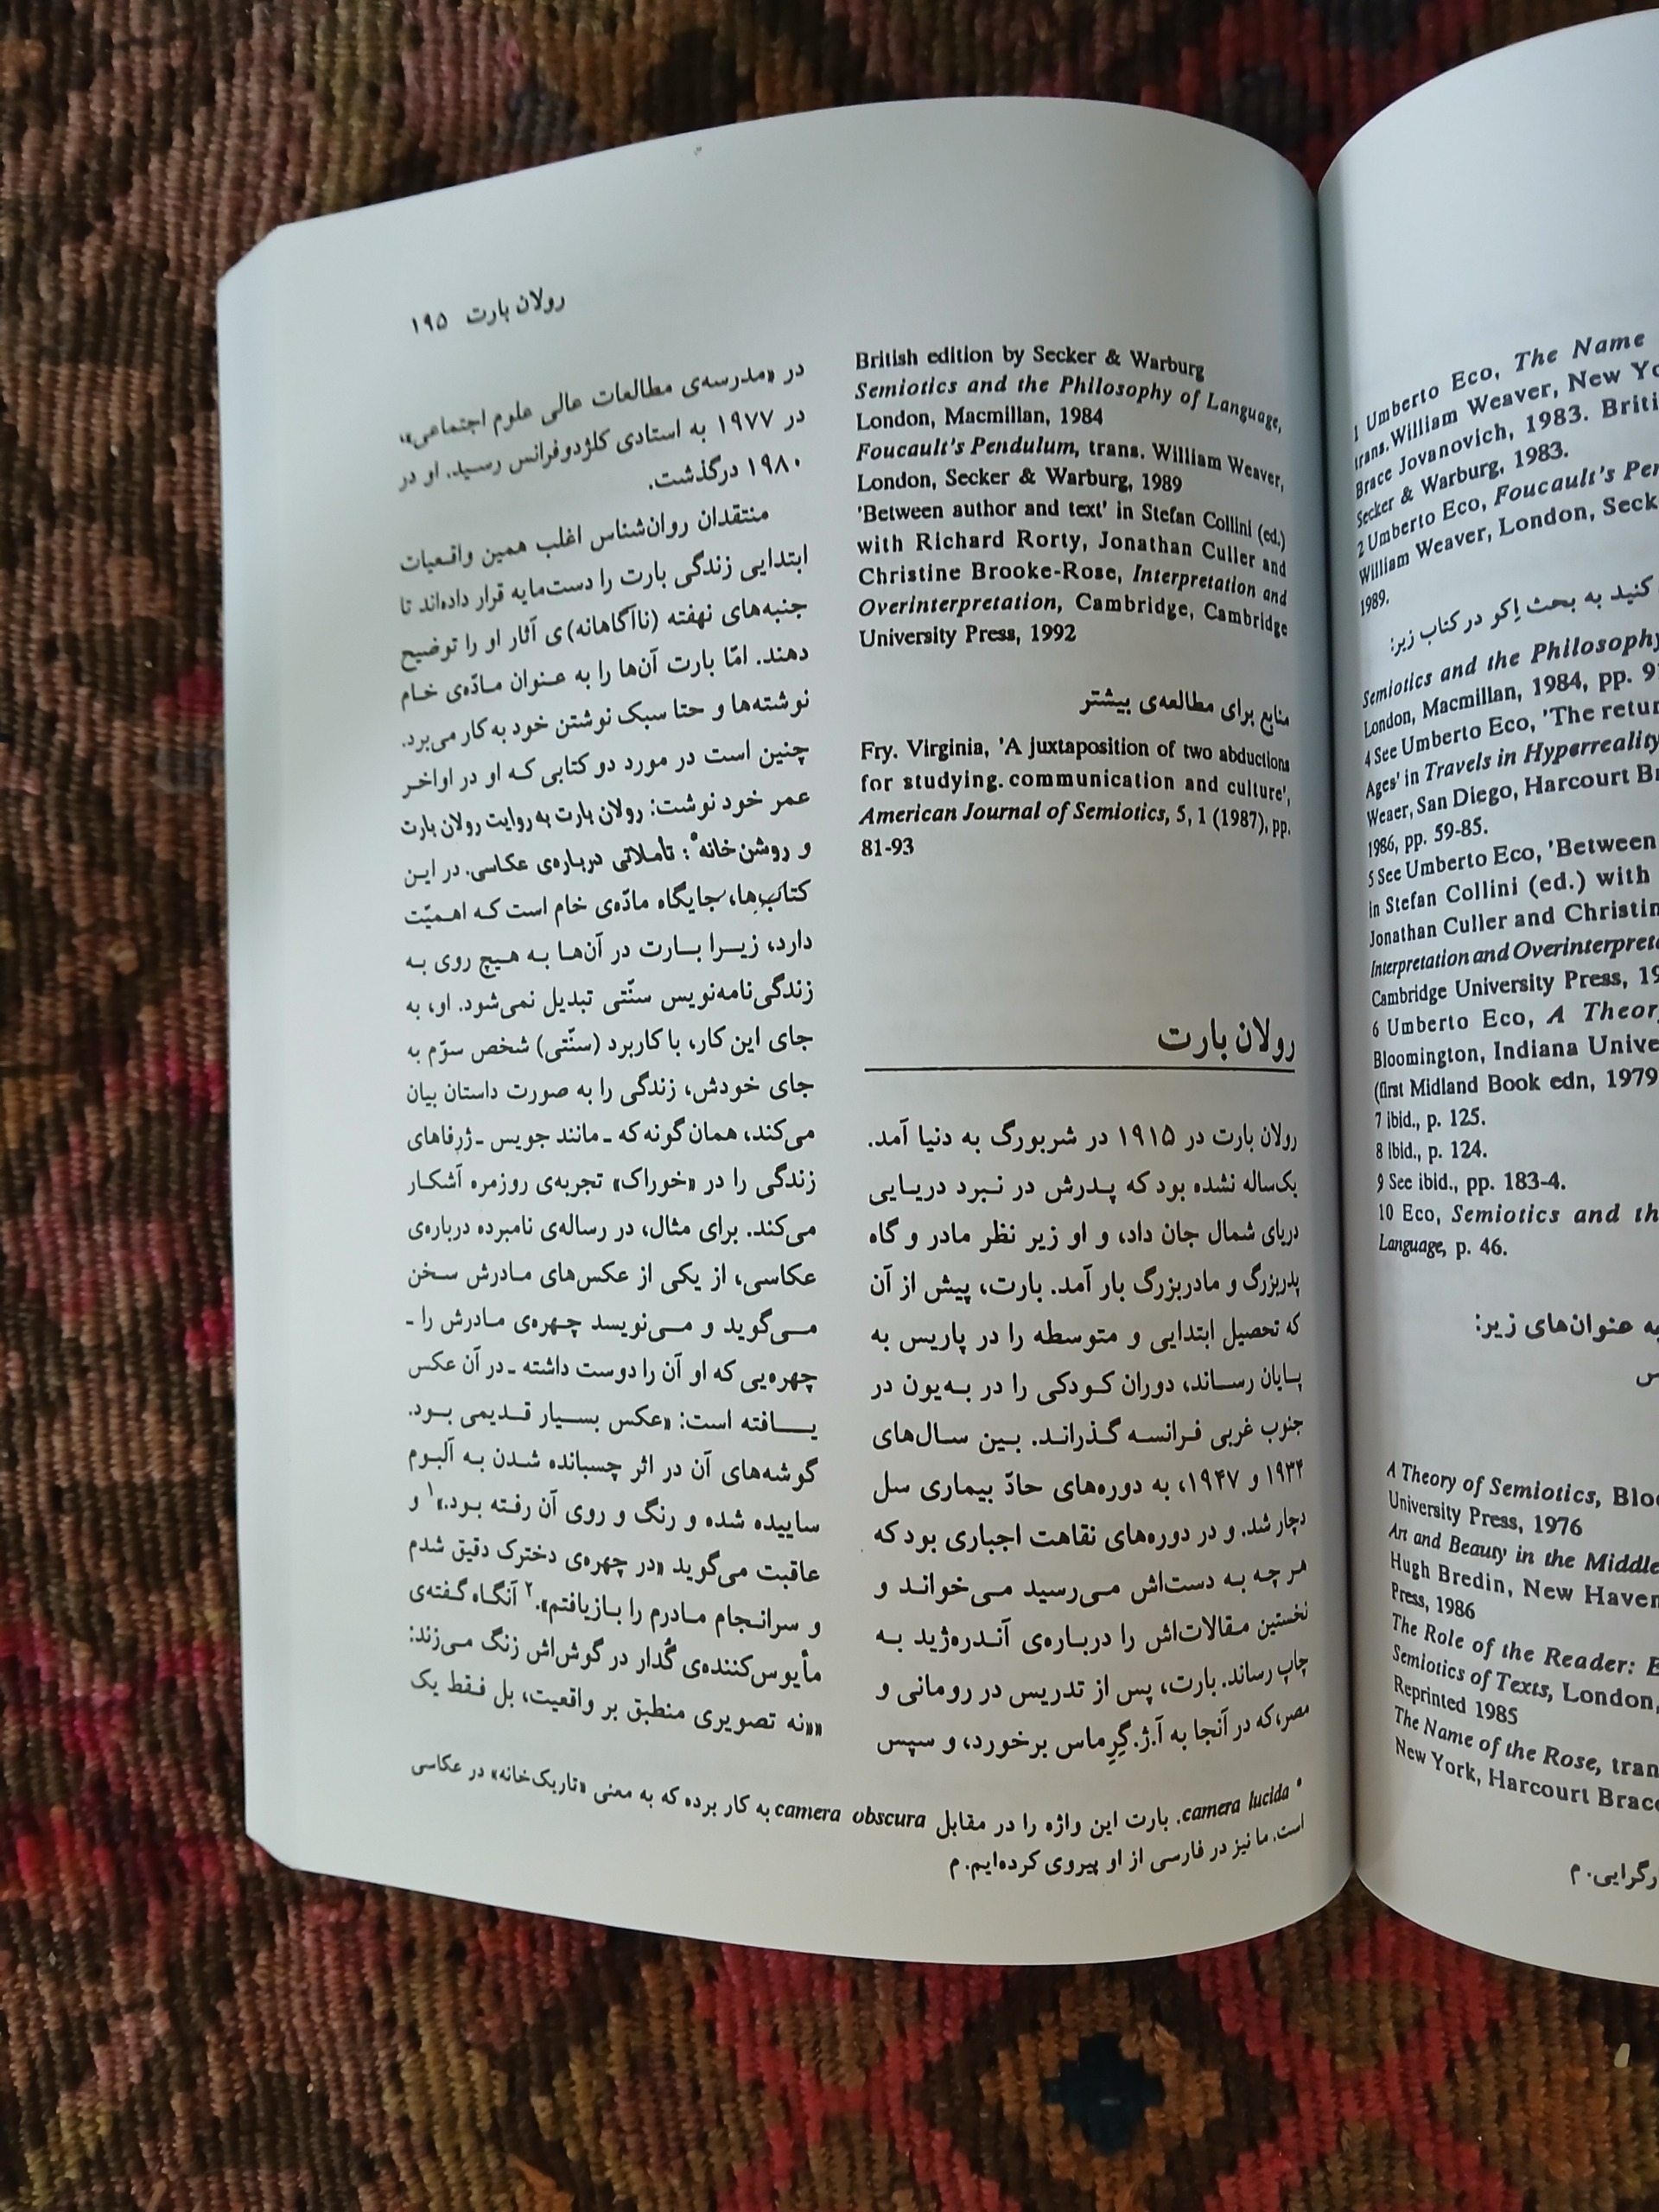 رولان بارت ۱۹۵
British edition by Secker & Warburg
Semiotics and the Philosophy of Language,
London, Macmillan, 1984
Foucault's Pendulum, trans. William Weaver,
London, Secker & Warburg, 1989
'Between author and text' in Stefan Collini (ed.)
with Richard Rorty, Jonathan Culler and
Christine Brooke-Rose, Interpretation and
Overinterpretation, Cambridge, Cambridge
University Press, 1992
منابع برای مطالعه‌ی بیشتر
Fry. Virginia, 'A juxtaposition of two abductions
for studying. communication and culture',
American Journal of Semiotics, 5, 1 (1987), pp.
81-93
رولان بارت
رولان بارت در ۱۹۱۵ در شربورگ به دنیا آمد.
یک‌ساله نشده بود که پدرش در نبرد دریایی
دریای شمال جان داد، و او زیر نظر مادر و گاه
پدربزرگ و مادربزرگ بار آمد. بارت، پیش از آن
که تحصیل ابتدایی و متوسطه را در پاریس به
پایان رساند، دوران کودکی را در به‌یون در
جنوب غربی فرانسه گذراند. بین سال‌های
۱۹۳۴ و ۱۹۴۷، به دوره‌های حادّ بیماری سل
دچار شد. و در دوره‌های نقاهت اجباری بود که
هر چه به دست‌اش می‌رسید می‌خواند و
نخستین مقالات‌اش را درباره‌ی آندره‌ژید به
چاپ رساند. بارت، پس از تدریس در رومانی و
مصر،که در آنجا به آ.ژ.گِرِماس برخورد، و سپس
در «مدرسه‌ی مطالعات عالی علوم اجتماعی»،
در ۱۹۷۷ به استادی کلژدوفرانس رسید. او در
۱۹۸۰ درگذشت.
منتقدان روان‌شناس اغلب همین واقعیات
ابتدایی زندگی بارت را دست‌مایه قرار داده‌اند تا
جنبه‌های نهفته (ناآگاهانه)ی آثار او را توضیح
دهند. امّا بارت آن‌ها را به عنوان مادّه‌ی خام
نوشته‌ها و حتا سبک نوشتن خود به کار می‌برد.
چنین است در مورد دو کتابی که او در اواخر
عمر خود نوشت: رولان بارت به روایت رولان بارت
و روشن‌خانه*: تأملاتی درباره‌ی عکاسی. در این
کتاب‌ها، جایگاه مادّه‌ی خام است که اهمیّت
دارد، زیرا بارت در آن‌ها به هیچ روی به
زندگی‌نامه‌نویس سنّتی تبدیل نمی‌شود. او، به
جای این کار، با کاربرد (سنّتی) شخص سوّم به
جای خودش، زندگی را به صورت داستان بیان
می‌کند، همان گونه که ـ مانند جویس ـ ژرفاهای
زندگی را در «خوراک» تجربه‌ی روزمره آشکار
می‌کند. برای مثال، در رساله‌ی نامبرده درباره‌ی
عکاسی، از یکی از عکس‌های مادرش سخن
می‌گوید و می‌نویسد چهره‌ی مادرش را ـ
چهره‌یی که او آن را دوست داشته ـ در آن عکس
یافته است: «عکس بسیار قدیمی بود.
گوشه‌های آن در اثر چسبانده شدن به آلبوم
ساییده شده و رنگ و روی آن رفته بود.»۱ و
عاقبت می‌گوید «در چهره‌ی دخترک دقیق شدم
و سرانجام مادرم را بازیافتم».۲ آنگاه گفته‌ی
مأیوس‌کننده‌ی گُدار در گوش‌اش زنگ می‌زند:
««نه تصویری منطبق بر واقعیت، بل فقط یک
* camera lucida. بارت این واژه را در مقابل camera obscura به کار برده که به معنی «تاریک‌خانه» در عکاسی
است. ما نیز در فارسی از او پیروی کرده‌ایم. م
1 Umberto Eco, The Name
trans. William Weaver, New
Brace Jovanovich, 1983.
Secker & Warburg, 1983.
2 Umberto Eco, Foucault's
William Weaver, London,
1989.
کنید به بحث اِکو در کتاب زیر:
Semiotics and the Philosophy
London, Macmillan, 1984, pp.
4 See Umberto Eco, 'The
Ages' in Travels in Hyperreality
Weaer, San Diego, Harcourt
1986, pp. 59-85.
5 See Umberto Eco, 'Between
in Stefan Collini (ed.) with
Jonathan Culler and
Interpretation and
Cambridge University Press,
6 Umberto Eco, A
Bloomington, Indiana
(first Midland Book edn, 1979
7 ibid., p. 125.
8 Ibid., p. 124.
9 See ibid., pp. 183-4.
10 Eco, Semiotics and
Language, p. 46.
به عنوان‌های زیر:
A Theory of Semiotics,
University Press, 1976
Art and Beauty in the Middle
Hugh Bredin, New
Press, 1986
The Role of the Reader:
Semiotics of Texts, London,
Reprinted 1985
The Name of the Rose,
New York, Harcourt
م